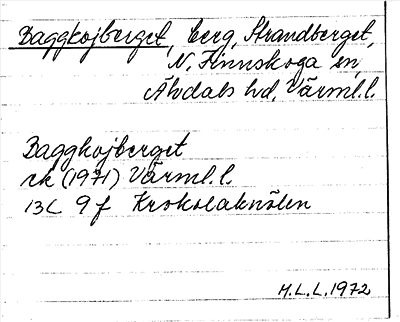 Baggkojberget, berg, Strandberget,
N. Finnskoga sn,
Älvdals hd, Värml.l.
Baggkojberget
rk (1971) Värml.l.
13C 9f Krokolaknölen
M.L.L. 1972